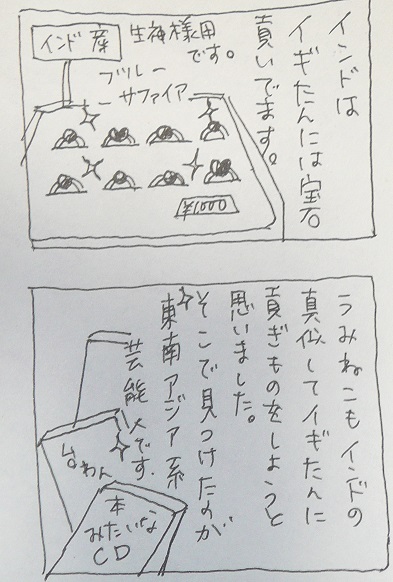 インドは
イギたんには宝石
貢いでます。
生神様用
です。
インド産
ブルー
サファイア
¥1,000
うみねこもインドの
真似してイギたんに
貢ぎものをしようと
思いました。
そこで見つけたのが
東南アジア系
芸能人です。
台わん
本
みたいな
CD